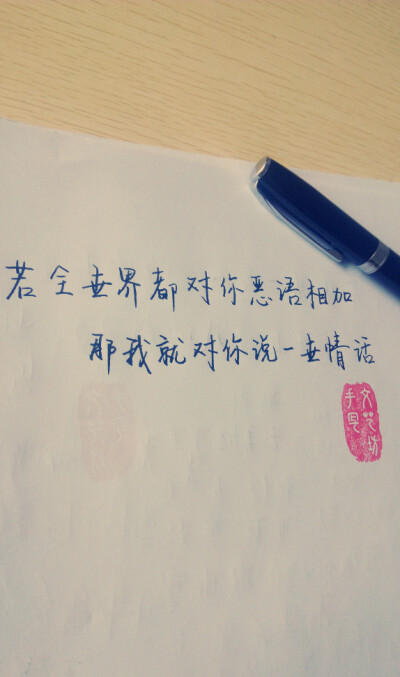 若全世界都对你恶语相加
那我就对你说一世情话
文艺坊
手写